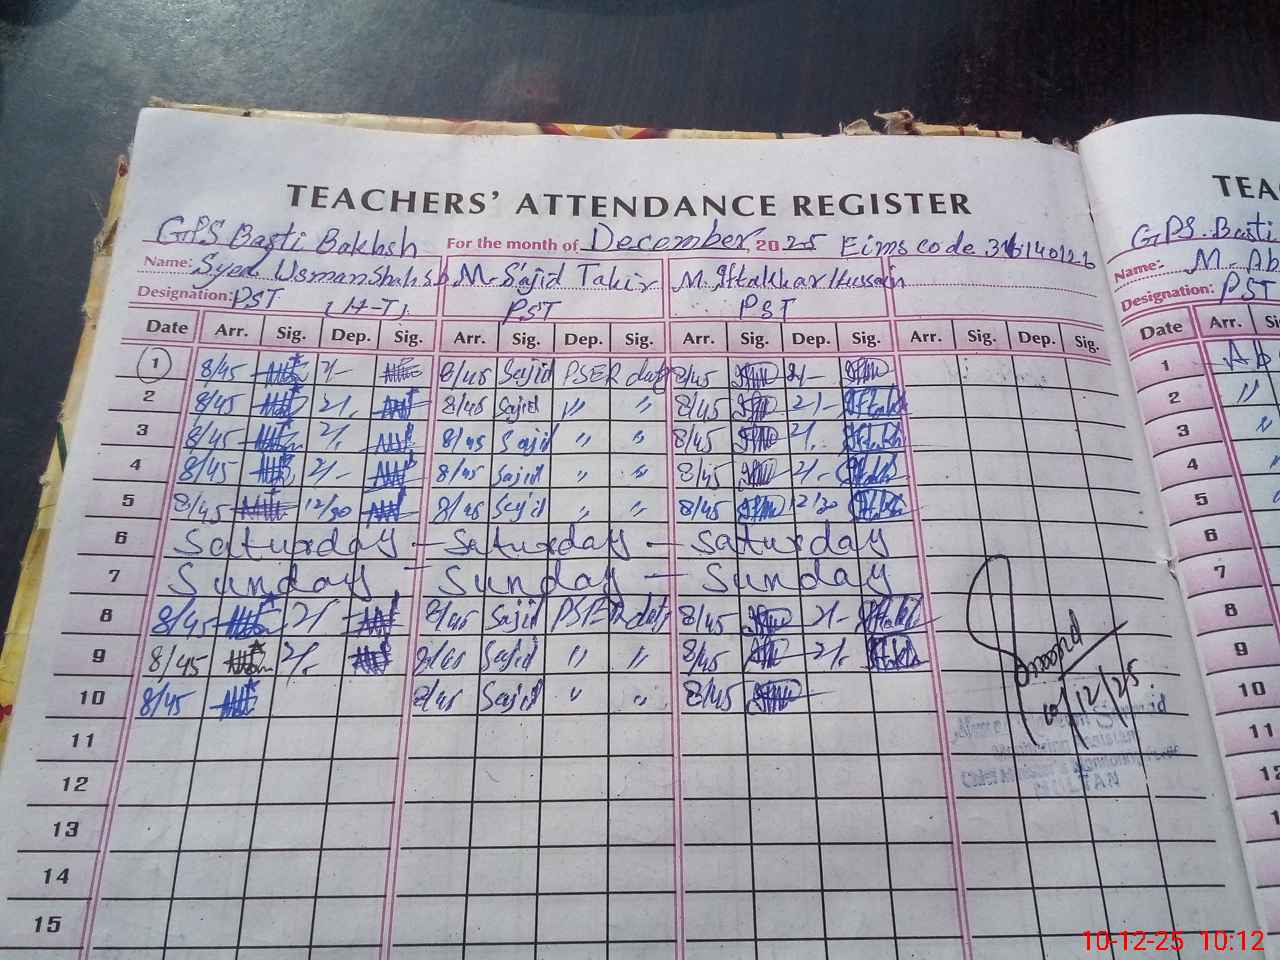 TEACHERS' ATTENDANCE REGISTER
GPS Basti Bakhsh For the month of December 2025 Eims code
Name: Syed Usman Shah M. Sajid Tahir M. Iftakhar Hussain
Designation: PST (H-T) PST PST
Date Arr. Sig. Dep. Sig. Arr. Sig. Dep. Sig. Arr. Sig. Dep. Sig. Arr. Sig. Dep. Sig.
1 8/45 2/- 8/45 Sajid PSER duty 8/45 2/-
2 8/45 2/. 8/45 Sajid " " 8/45 2/- Iftakh
3 8/45 2/. 8/45 Sajid " " 8/45 2/. Iftakh
4 8/45 2/- 8/45 Sajid " " 8/45 2/- Iftakh
5 8/45 12/30 8/45 Sajid " " 8/45 12/30 Iftakh
6 Saturday - Saturday - Saturday
7 Sunday - Sunday - Sunday
8 8/45 2/. 8/45 Sajid PSER duty 8/45 2/- Iftakh
9 8/45 2/. 8/45 Sajid " " 8/45 2/. Iftakh
10 8/45 8/45 Sajid " " 8/45
11
12
13
14
15
10/12/25
MULTAN
TEA
GPS Basti
Name: M. Ab
Designation: PST
Date Arr. Si
1 Ab
2 "
3 "
4
5
6
7
8
9
10
11
12
1
10-12-25 10:12